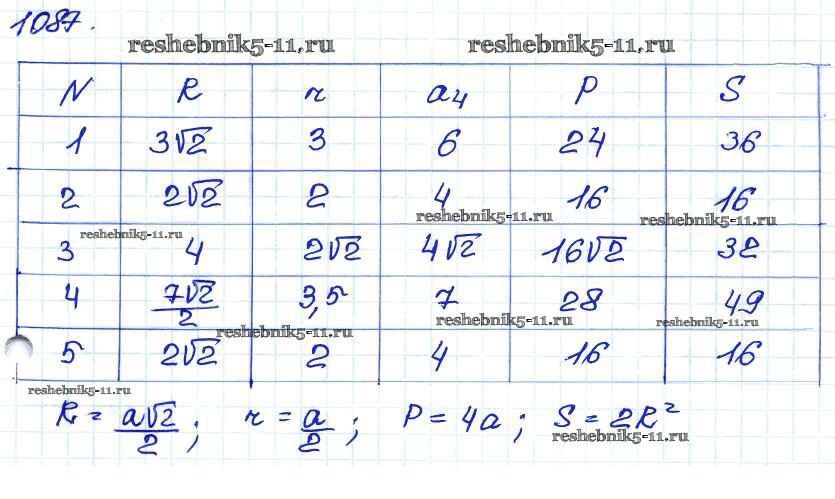 1087.
reshebnik5-11.ru reshebnik5-11.ru
N R r a₄ P S
1 3√2 3 6 24 36
2 2√2 2 4 16 16
reshebnik5-11.ru reshebnik5-11.ru
reshebnik5-11.ru
3 4 2√2 4√2 16√2 32
4 7√2/2 3,5 7 28 49
reshebnik5-11.ru reshebnik5-11.ru
reshebnik5-11.ru
5 2√2 2 4 16 16
reshebnik5-11.ru
R = a√2/2; r = a/2; P = 4a; S = 2R²
reshebnik5-11.ru